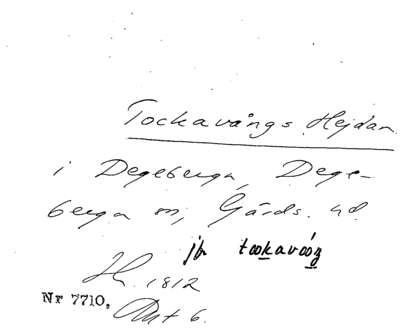 Tockavångs Hejdan
i Degeberga, Dege-
berga sn, Gärds. hd.
jfr tookavoŋ
1812
Nr 7710, Akt 6.